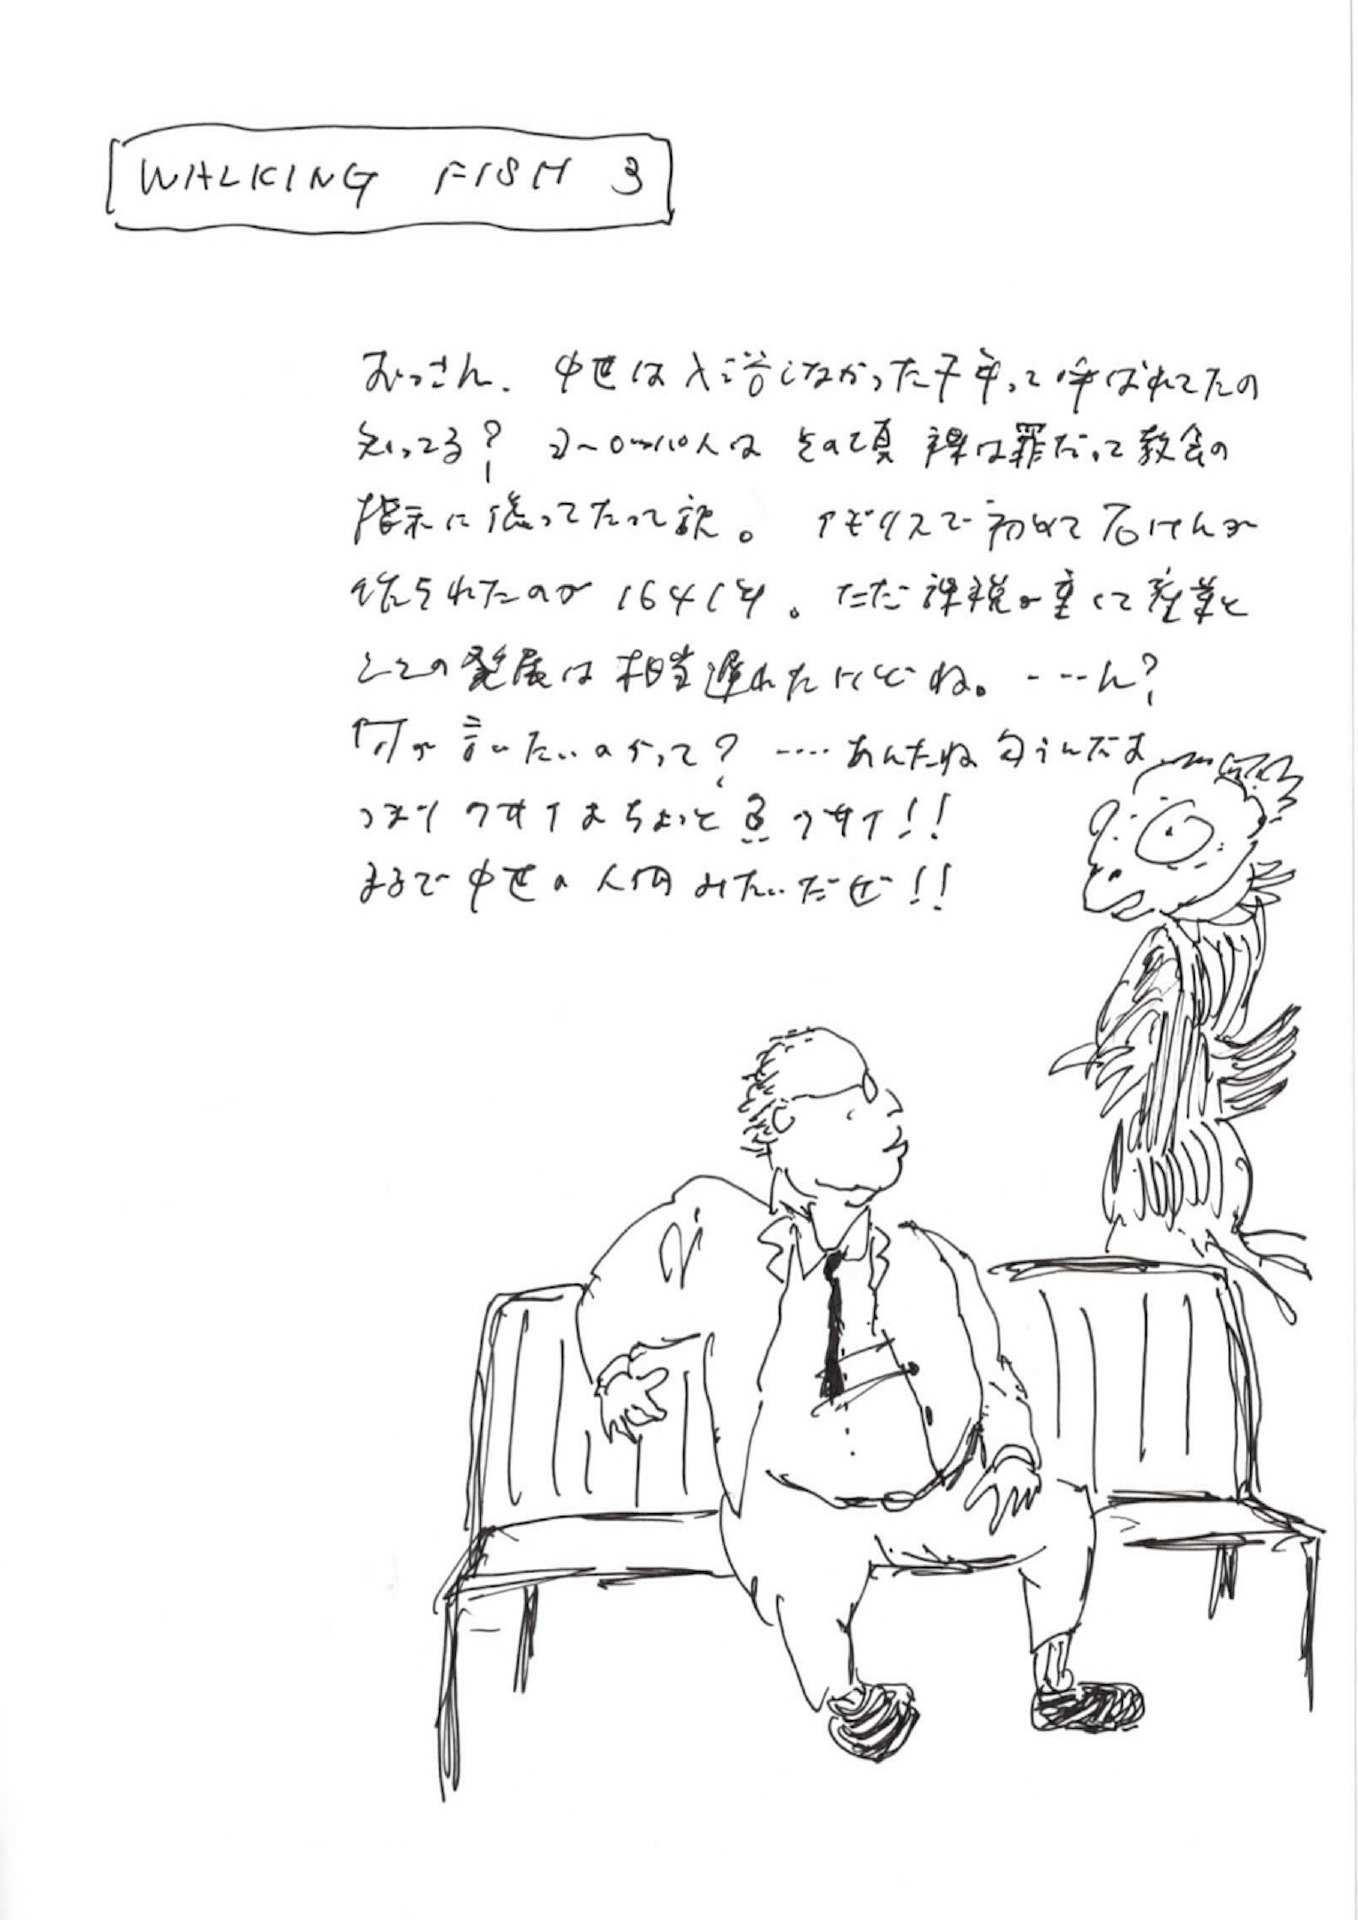 WALKING FISH 3
おっさん、中世は入浴しなかった千年って呼ばれてたの
知ってる? ヨーロッパ人は 真裸は罪だって教会の
指示に従ってたって訳。 イギリスで初めて石けんが
作られたのが1641年。ただ課税が重くて産業と
しての発展は相当遅れたけどね。……ん?
何が言いたいのかって? ……あんたね匂うんだよ
つまりクサイよちょっと魚クサイ!!
まるで中世の人間みたいだぜ!!